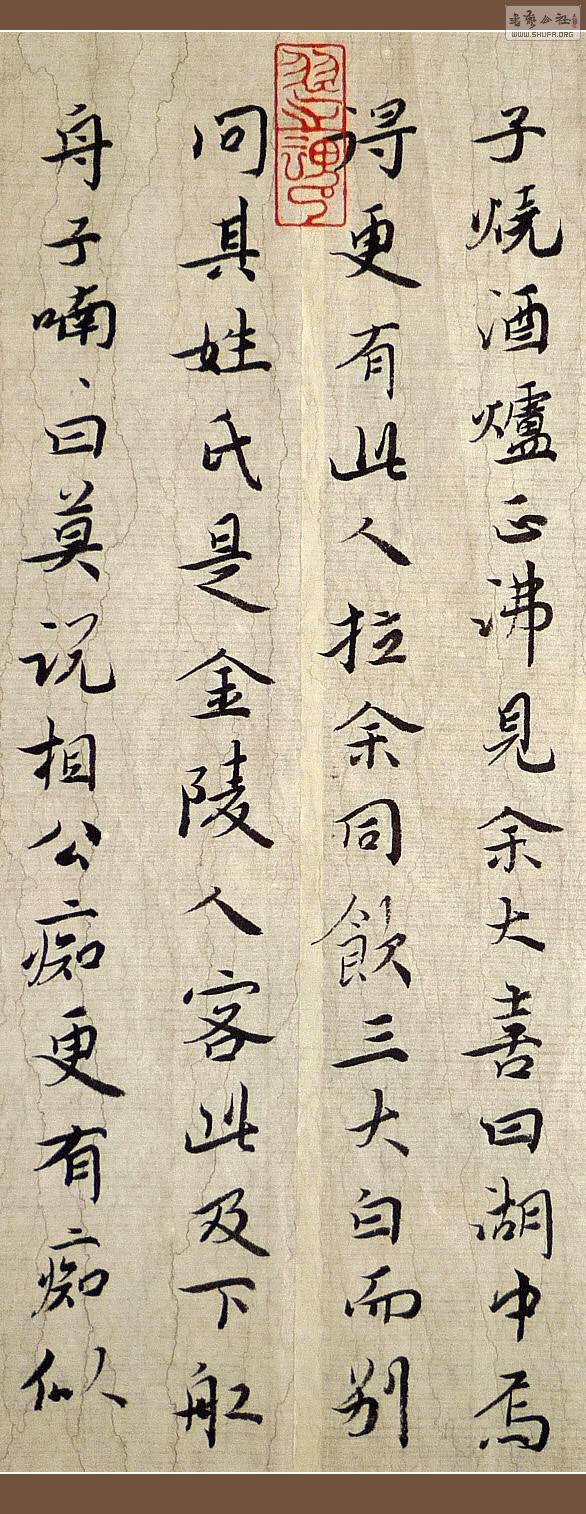 子燒酒爐正沸見余大喜曰湖中焉
得更有此人拉余同飲三大白而別
問其姓氏是金陵人客此及下舡
舟子喃、曰莫説相公痴更有痴似
WWW.SHUFR.ORG